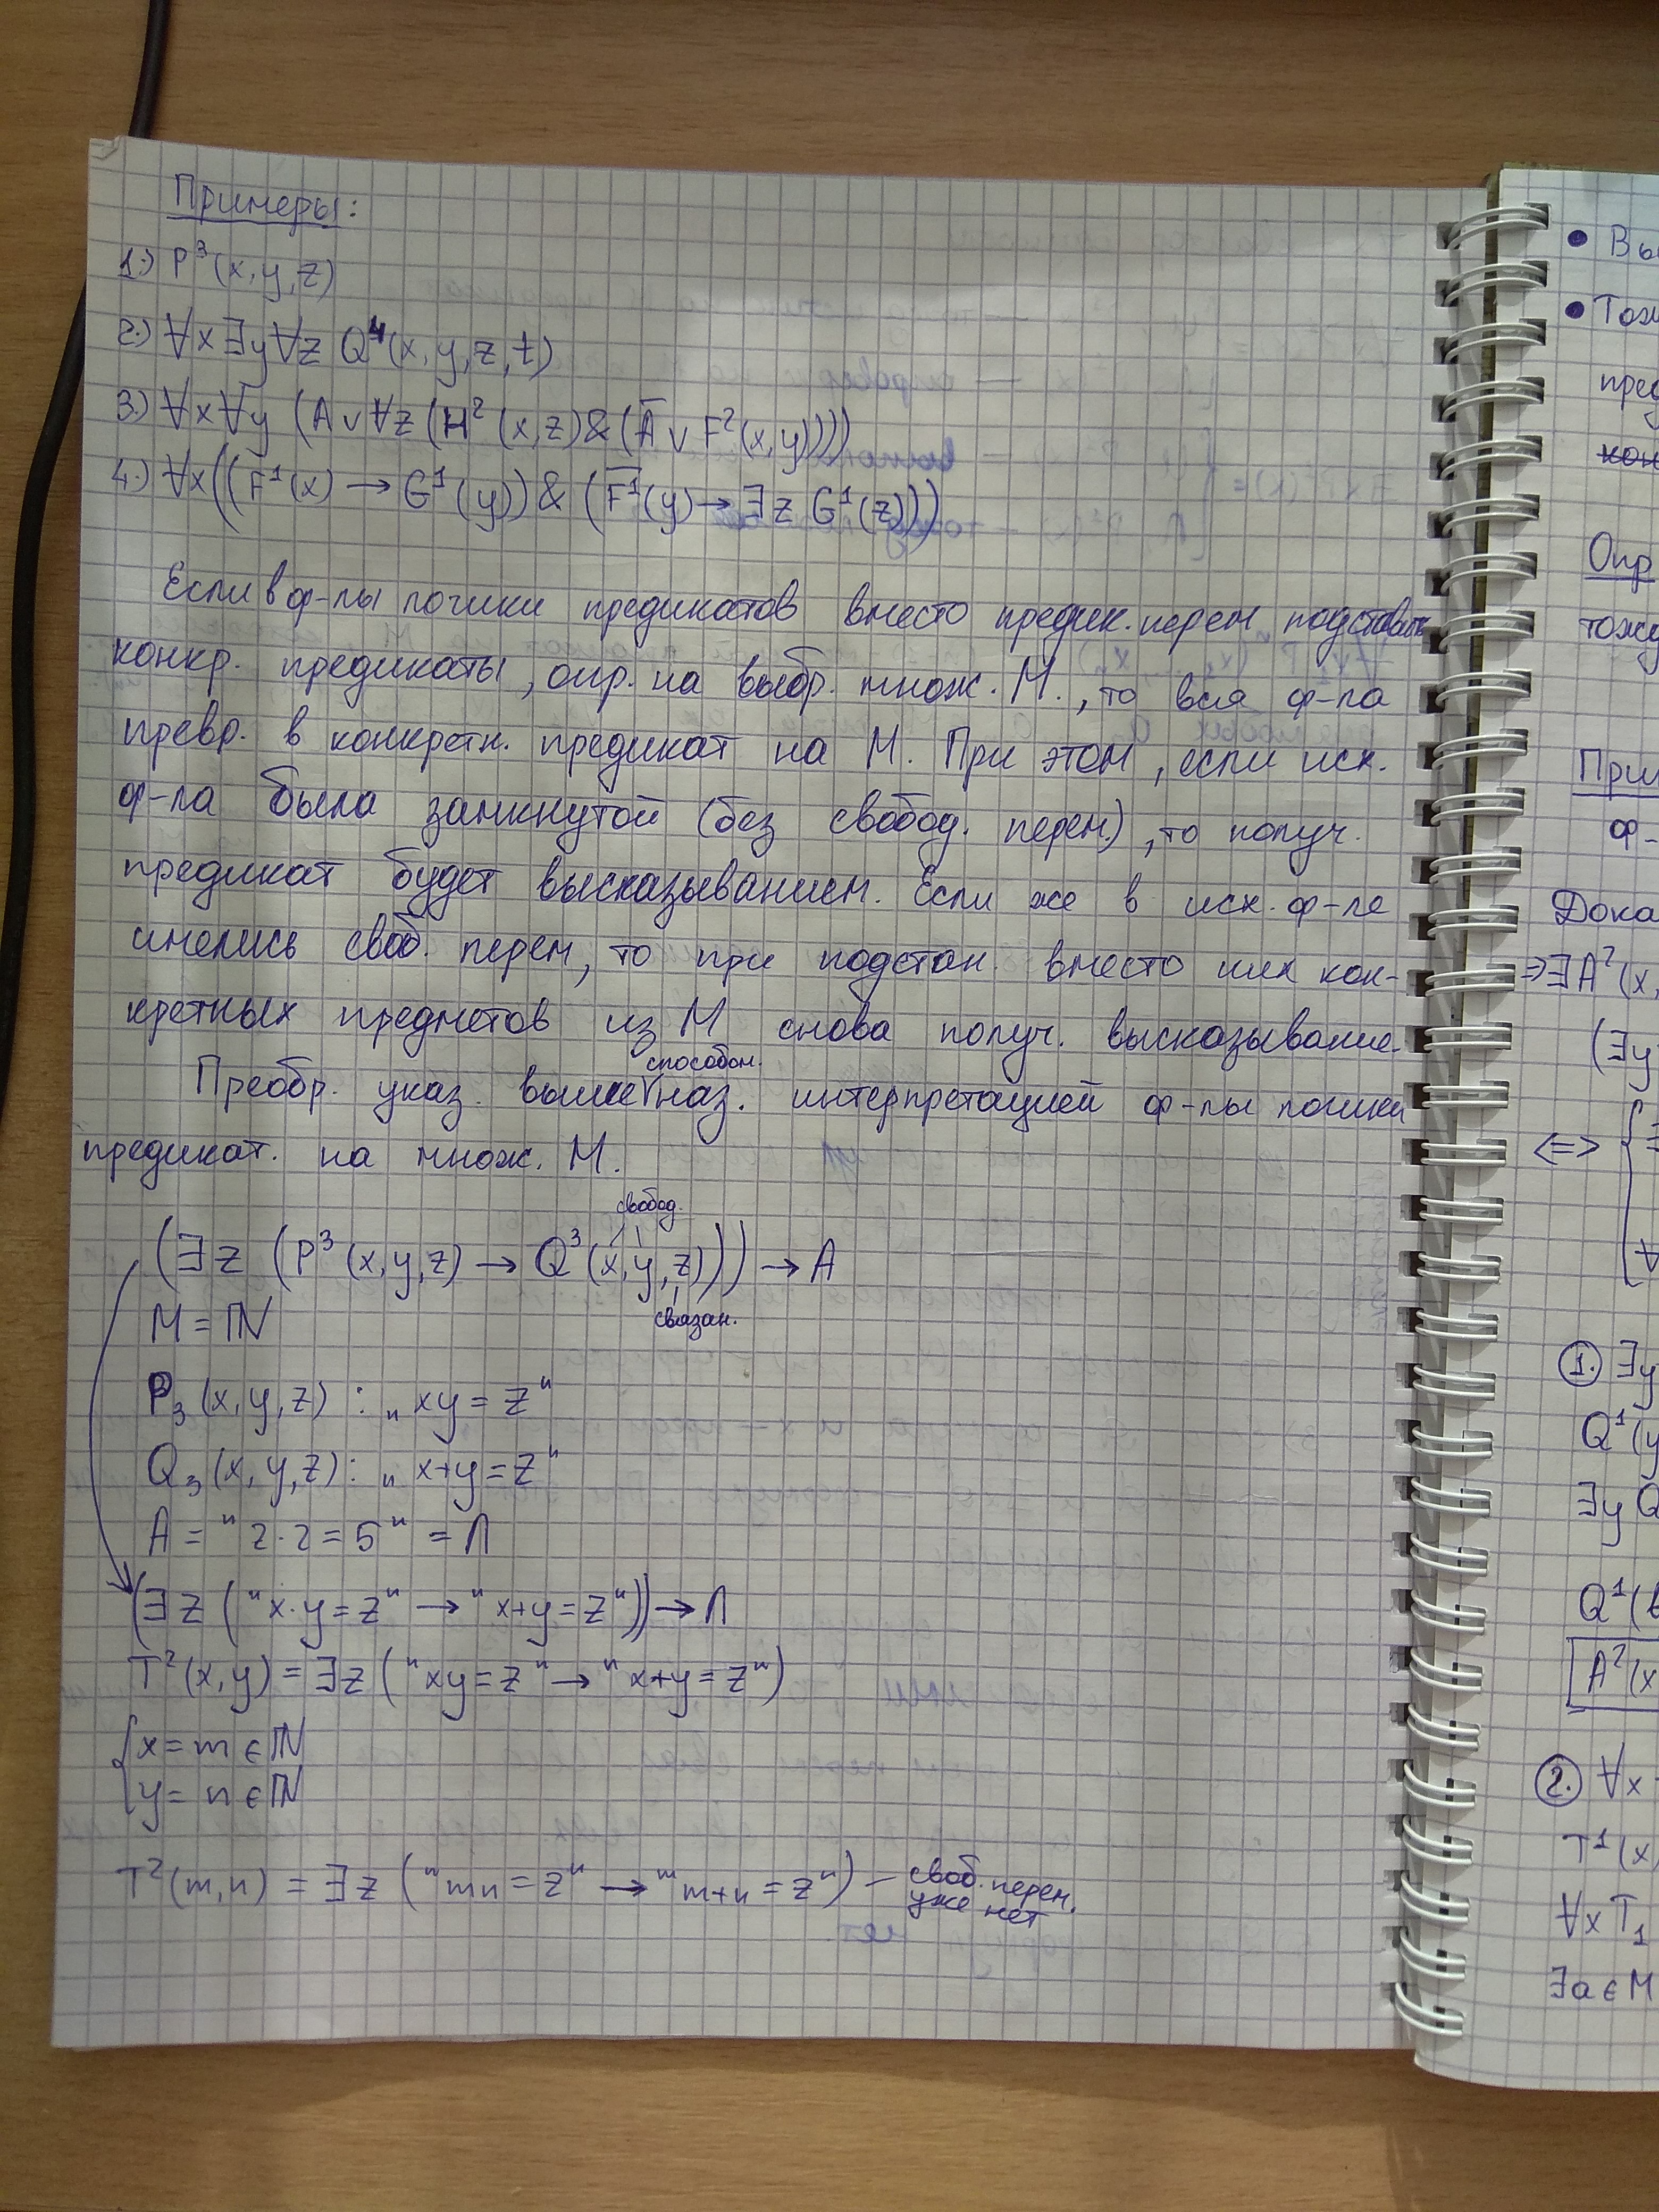 Примеры:
1.) P³(x,y,z)
2.) ∀x∃y∀z Q⁴(x,y,z,t)
3.) ∀x∀y (A∨∀z(H²(x,z)&(A̅∨F²(x,y))))
4.) ∀x((F¹(x)→G¹(y))&(F̅¹(y)→∃z G¹(z)))
Если в ф-лы логики предикатов вместо предик. перем подставить
конкр. предикаты, опр. на выбр. множ. М., то вся ф-ла
превр. в конкретн. предикат на М. При этом, если исх.
ф-ла была замкнутой (без свобод. перем), то получ.
предикат будет высказыванием. Если же в исх. ф-ле
имелись своб. перем, то при подстан. вместо них кон-
кретных предметов из М снова получ. высказывание.
способом.
Преобр. указ. выше наз. интерпретацией ф-лы логики
предикат. на множ. М.
свобод.
(∃z (P³(x,y,z) → Q³(x,y,z))) → A
связан.
M = ℕ
P₃(x,y,z) : „xy = z"
Q₃(x,y,z): „x+y=z"
A = "2·2=5" = Л
(∃z ("x·y=z" → "x+y=z")) → Л
T²(x,y) = ∃z ("xy=z" → "x+y=z")
{x = m ∈ ℕ
y = n ∈ ℕ
T²(m,n) = ∃z ("mn = z" → "m+n = z") — своб. перем.
уже нет
• Вы
• Тож
пред
кон
Опр
тожд
При
ф-
Дока
⇒∃A²(x,
(∃y
⇔ {
∀
1. ∃y
Q¹(y
∃y Q
Q¹(
A²(x
2. ∀x
T¹(x)
∀x T₁
∃a ∈ M